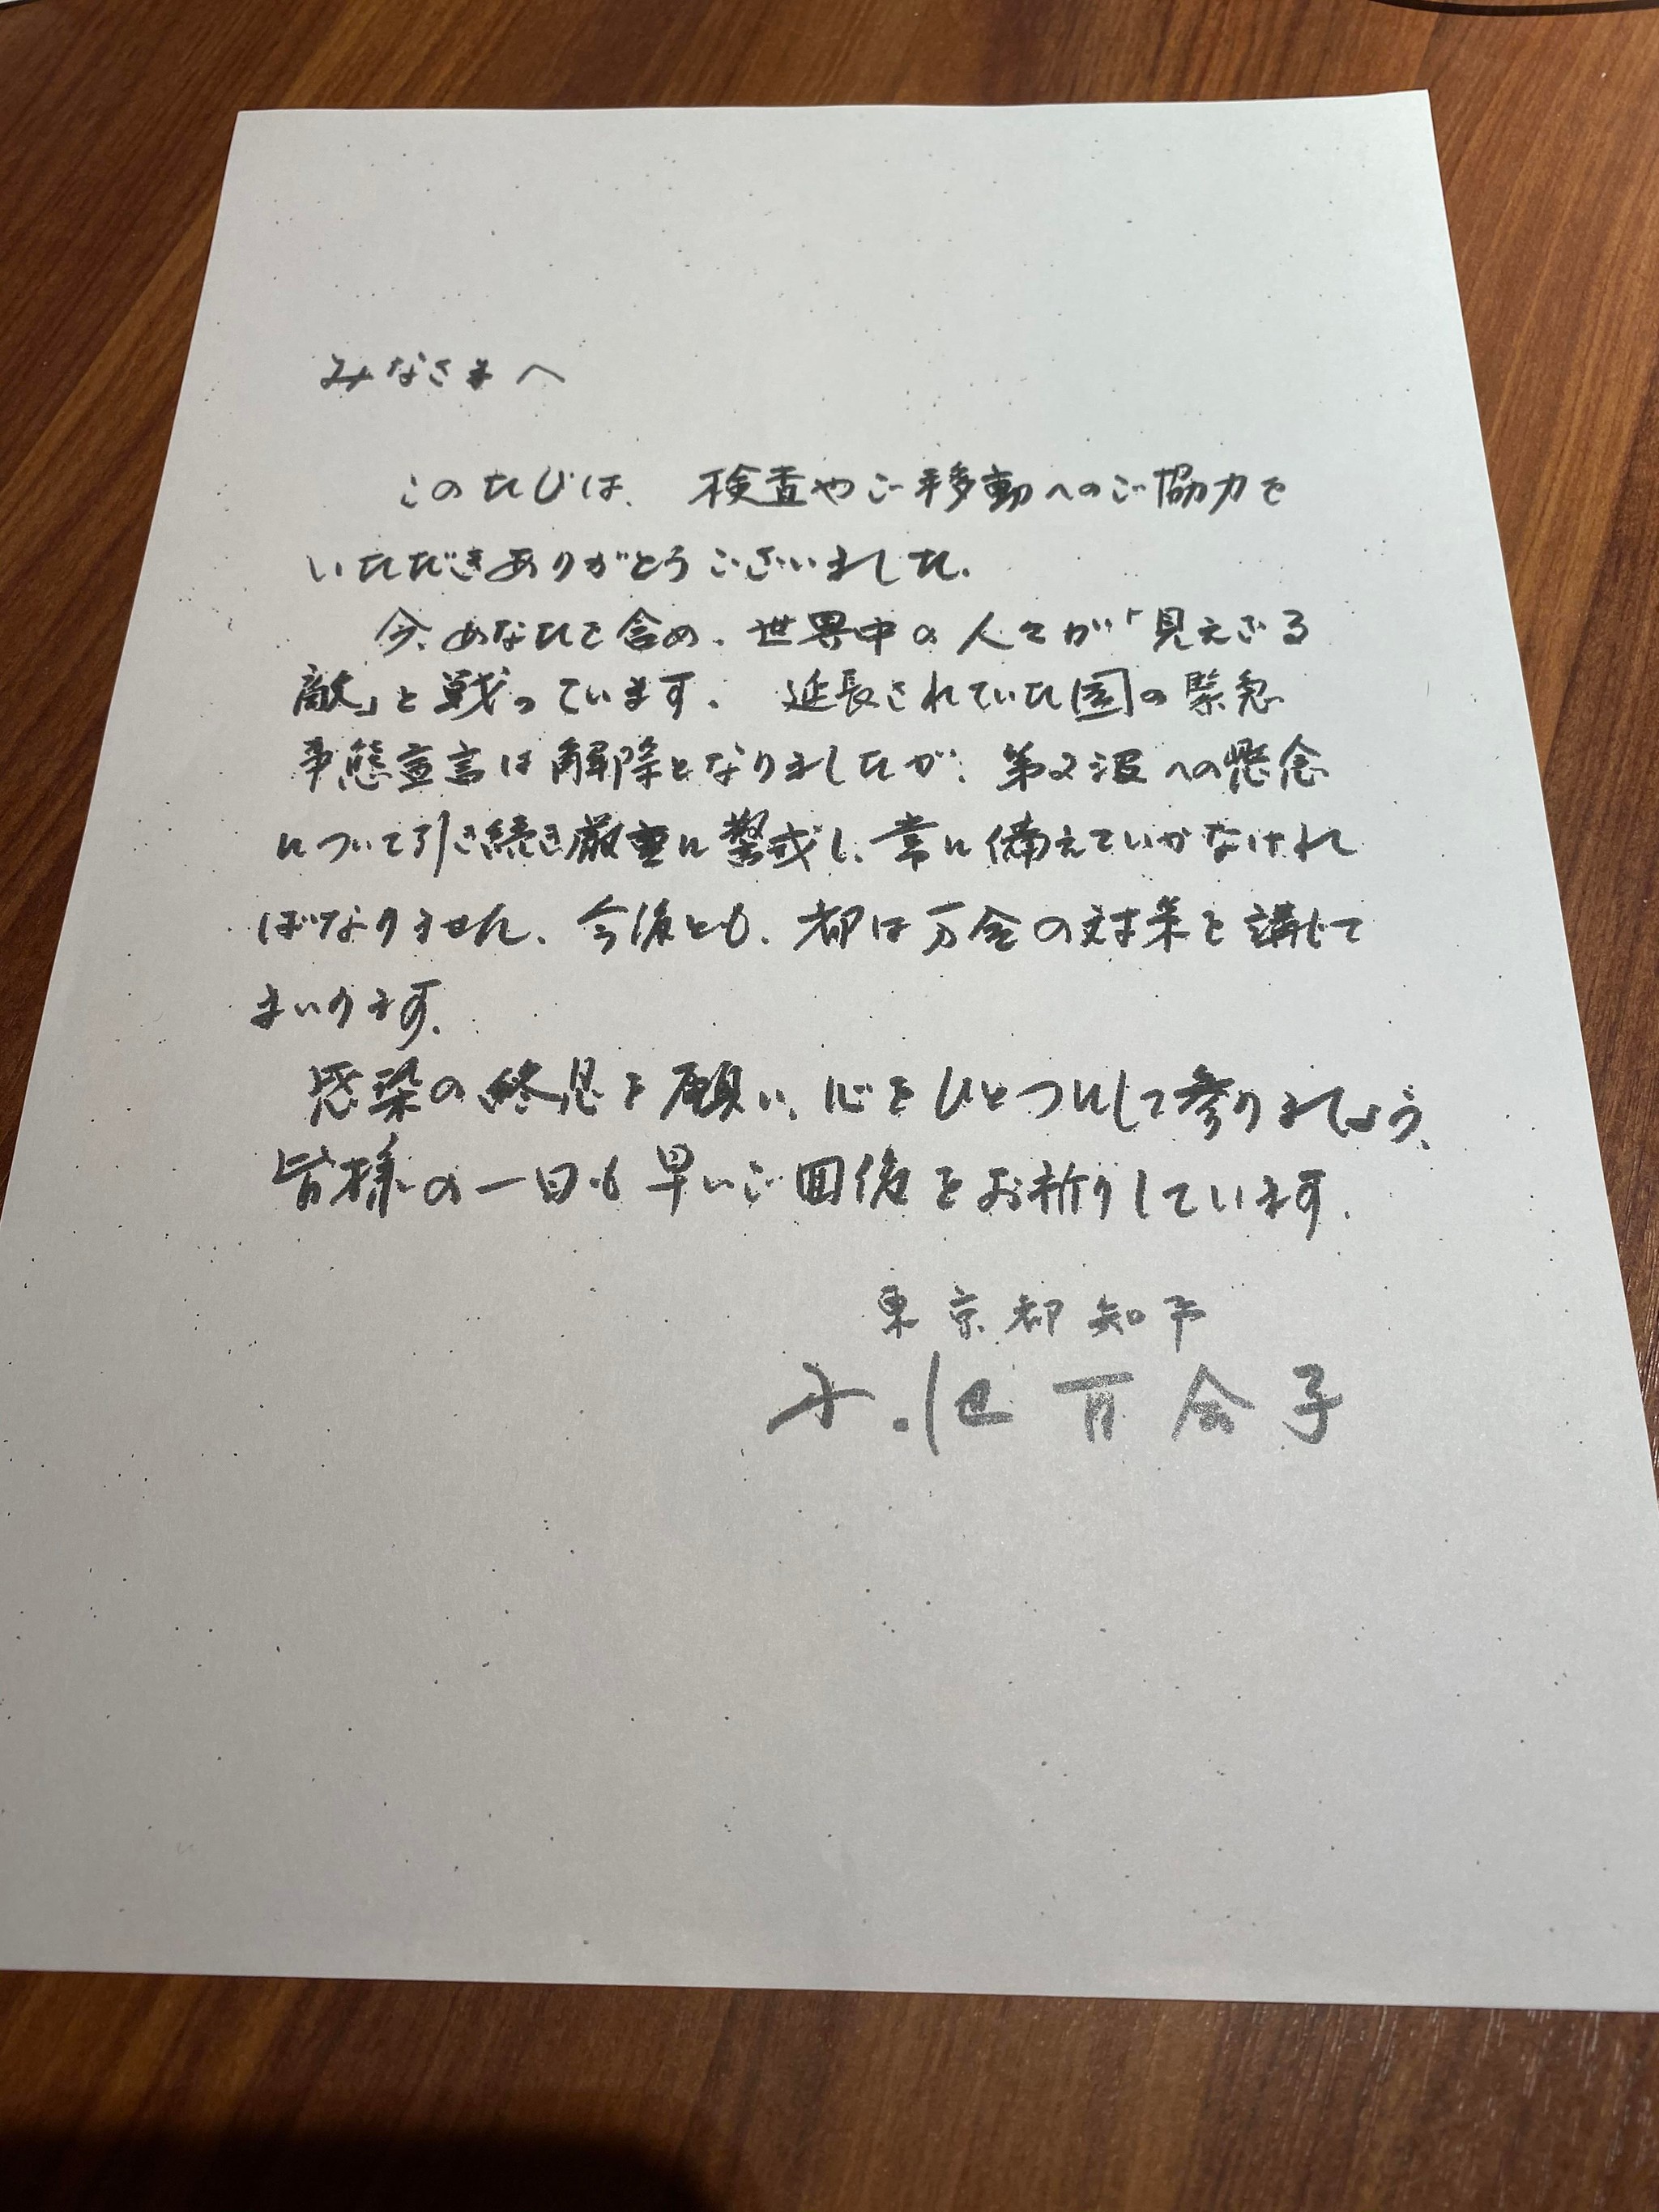 みなさまへ
このたびは、検査やご移動へのご協力を
いただきありがとうございました。
今、あなたを含め、世界中の人々が「見えざる
敵」と戦っています。延長されていた国の緊急
事態宣言は解除となりましたが、第2波への懸念
について引き続き厳重に警戒し、常に備えていかなけれ
ばなりません。今後とも、都は万全の対策を講じて
まいります。
感染の終息を願い、心をひとつにして参りましょう。
皆様の一日も早いご回復をお祈りしています。
東京都知事
小池百合子